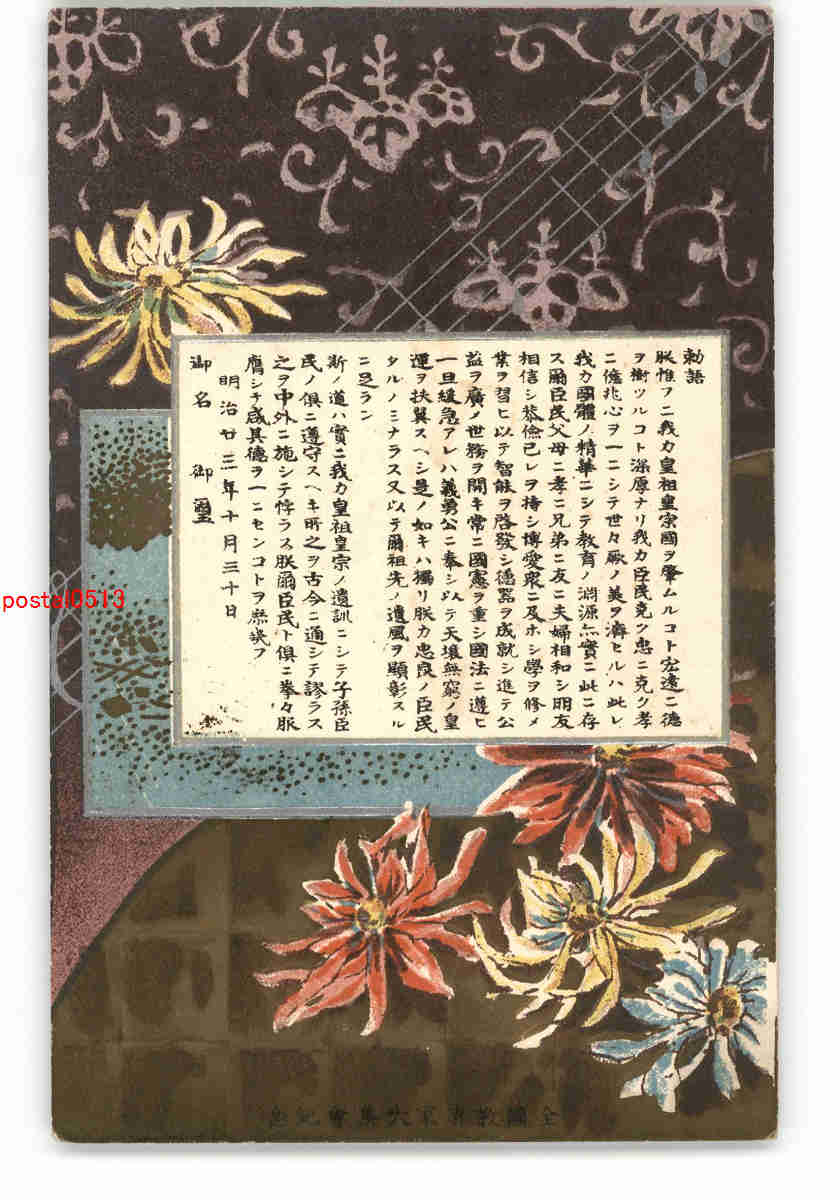 勅語
朕惟フニ我カ皇祖皇宗國ヲ肇ムルコト宏遠ニ德
ヲ樹ツルコト深厚ナリ我カ臣民克ク忠ニ克ク孝
ニ億兆心ヲ一ニシテ世々厥ノ美ヲ濟セルハ此レ
我カ國體ノ精華ニシテ教育ノ淵源亦實ニ此ニ存
ス爾臣民父母ニ孝ニ兄弟ニ友ニ夫婦相和シ朋友
相信シ恭儉己レヲ持シ博愛衆ニ及ホシ學ヲ修メ
業ヲ習ヒ以テ智能ヲ啓發シ德器ヲ成就シ進テ公
益ヲ廣メ世務ヲ開キ常ニ國憲ヲ重シ國法ニ遵ヒ
一旦緩急アレハ義勇公ニ奉シ以テ天壤無窮ノ皇
運ヲ扶翼スヘシ是ノ如キハ獨リ朕カ忠良ノ臣民
タルノミナラス又以テ爾祖先ノ遺風ヲ顯彰スル
ニ足ラン
斯ノ道ハ實ニ我カ皇祖皇宗ノ遺訓ニシテ子孫臣
民ノ俱ニ遵守スヘキ所之ヲ古今ニ通シテ謬ラス
之ヲ中外ニ施シテ悖ラス朕爾臣民ト俱ニ拳々服
膺シテ咸其德ヲ一ニセンコトヲ庶幾フ
明治廿三年十月三十日
御名 御璽
全國教育家大集會紀念
postal0513